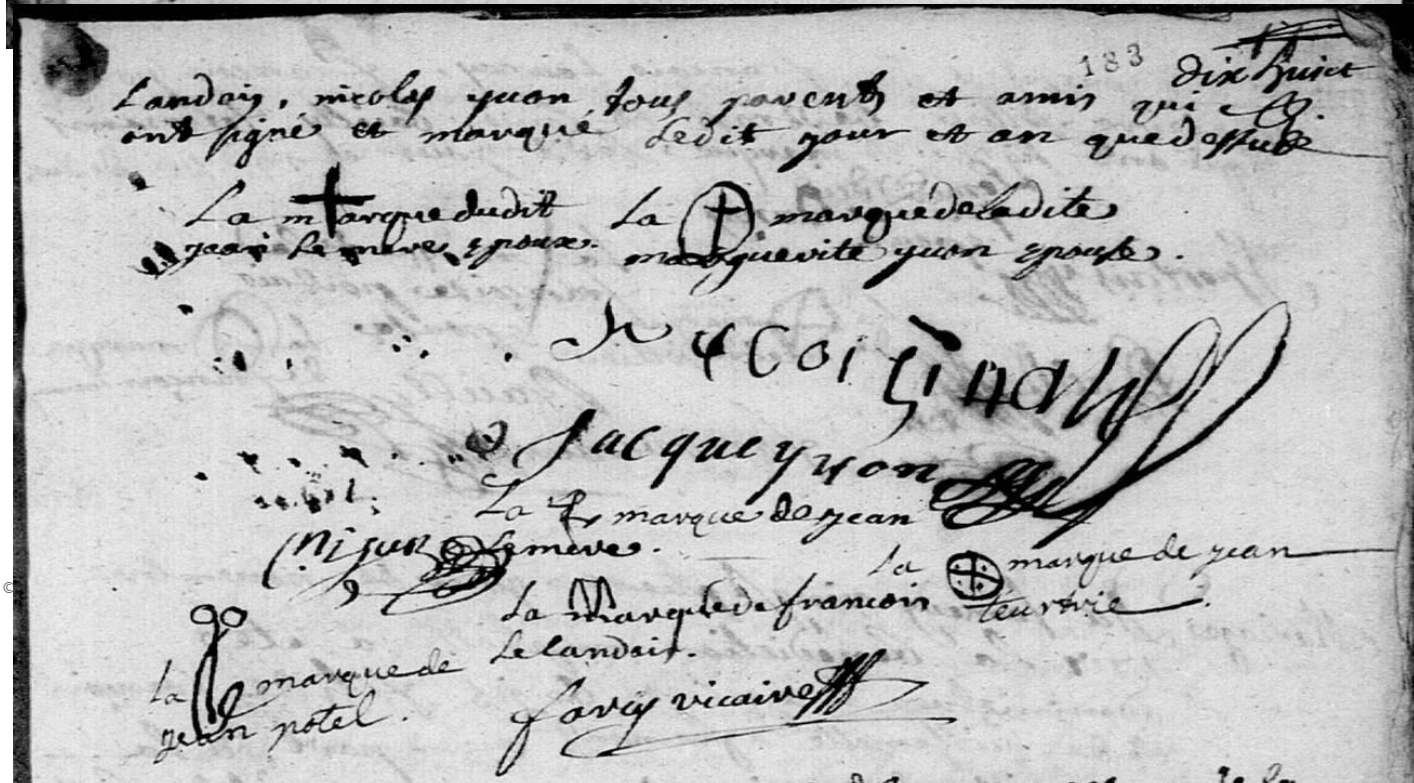 183
dix huict
Landois, nicolas yuon tous parents et amis qui
ont signé et marqué Ledit jour et an que dessus
La marque dudit La marque de ladite
jean Lemere epoux. marguerite yuon epouse.
Jacque yuon
La marque de jean
Lemere.
La marque de jean
La marque de francois
Lelandois.
La marque de
jean potel.
farcy vicaire
©